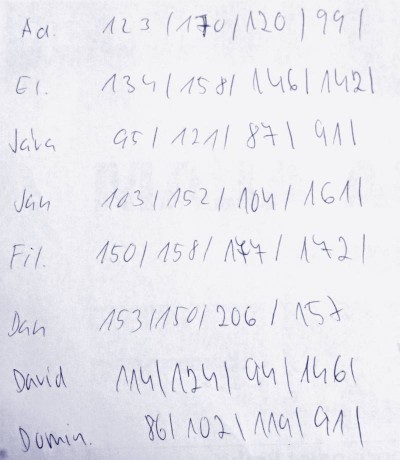 Ad. 123/170/120/99/
El. 134/158/146/142/
Jára 95/121/87/91/
Jan 103/152/104/161/
Fil. 150/158/177/172/
Dan 153/150/206/157
David 114/124/94/146/
Domin. 86/102/119/91/